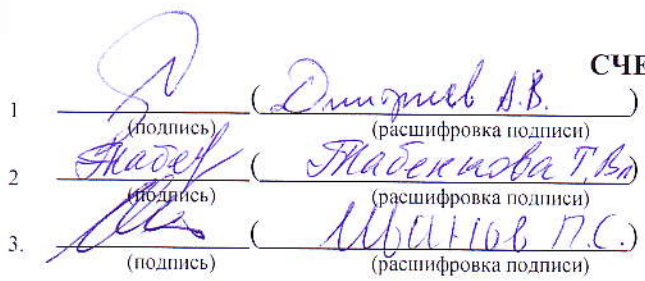 СЧЕ
1 (Дмитриев А.В.)
(подпись) (расшифровка подписи)
2 Табен (Табенькова Т.Вл)
(подпись) (расшифровка подписи)
3. (Иванов П.С.)
(подпись) (расшифровка подписи)